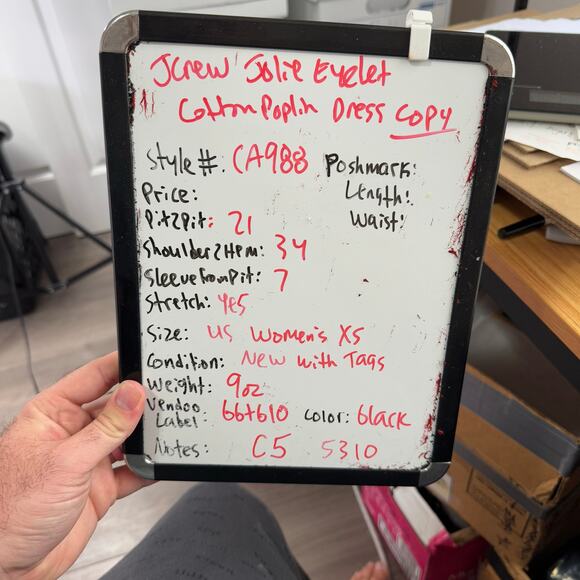 Jcrew Jolie Eyelet
Cotton Poplin Dress Copy
Style#: CA988
Poshmark:
Length:
Waist:
Price:
Pit2Pit: 21
Shoulder2Hem: 34
Sleeve from Pit: 7
Stretch: Yes
Size: US Women's XS
Condition: New with Tags
Weight: 9oz
Vendoo Label: bbt610 Color: black
Notes: C5 5310